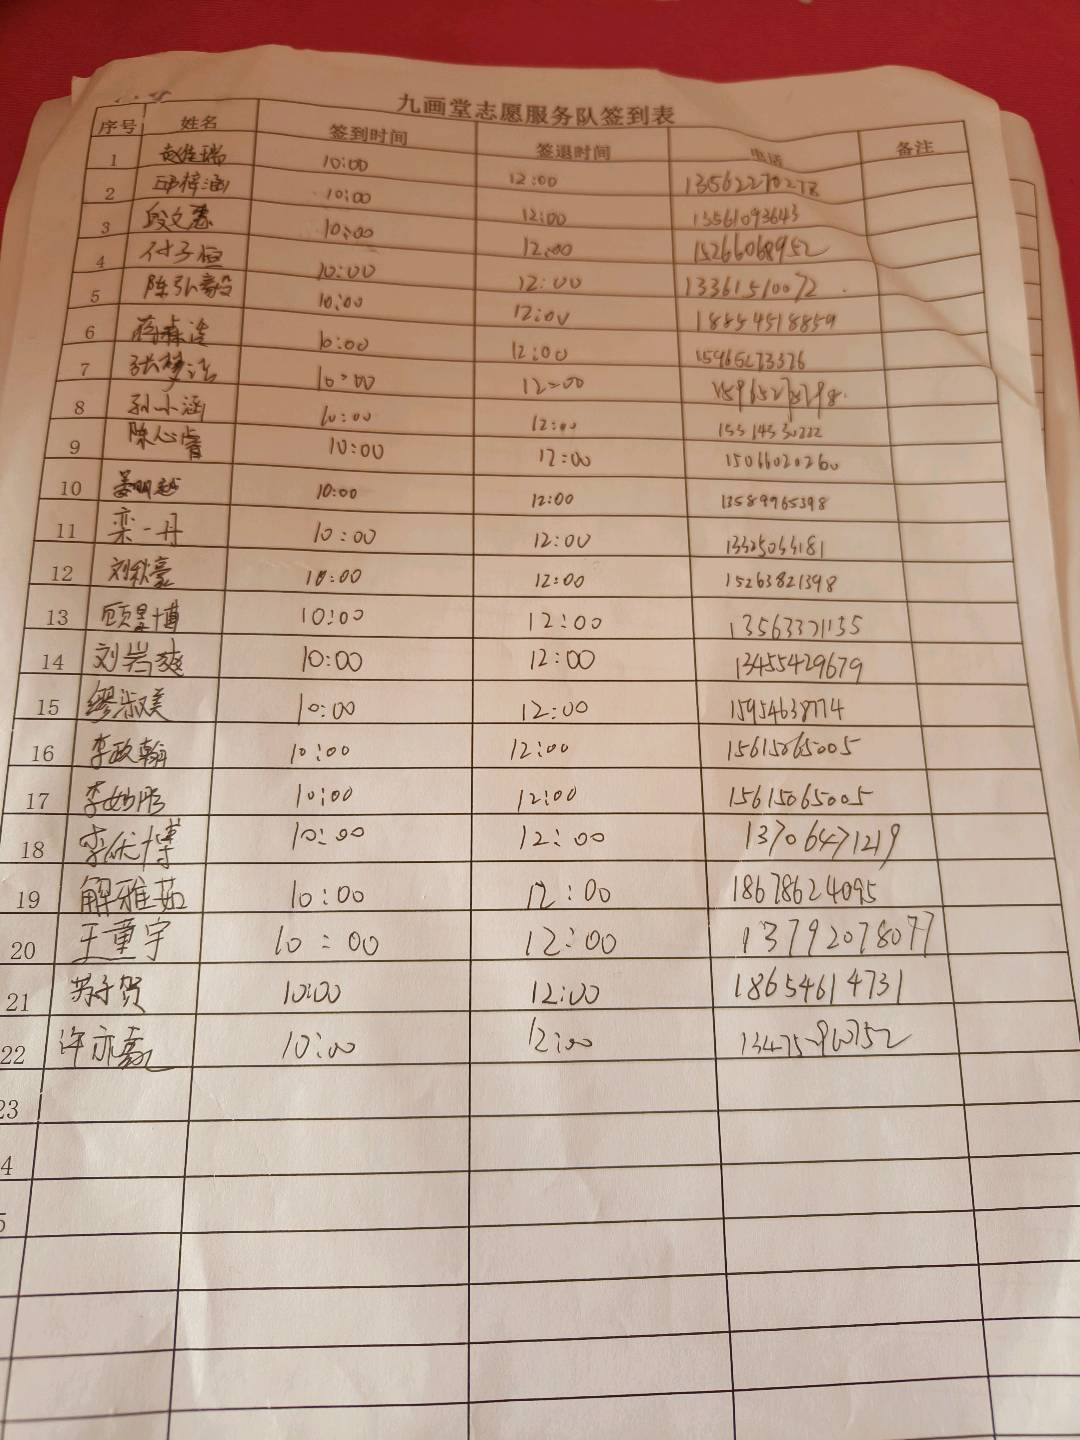 九画堂志愿服务队签到表
序号 姓名 签到时间 签退时间 电话 备注
1 10:00 12:00
2 邱梓涵 10:00 12:00 13561093643
3 段文慧 10:00 12:00 15266068952
4 付子恒 10:00 12:00 13361510072
5 陈弘毅 10:00 12:00 18854518859
6 10:00 12:00
7 10:00 12:00
8 孙小涵 10:00 12:00
9 陈心睿 10:00 12:00 15066020260
10 姜明越 10:00 12:00 13589965398
11 栾一丹 10:00 12:00
12 刘秋豪 10:00 12:00 15263821398
13 顾昱博 10:00 12:00 13563371135
14 刘岩爽 10:00 12:00 13455429679
15 缪淑美 10:00 12:00 15954638774
16 李政翰 10:00 12:00 15615065005
17 10:00 12:00 15615065005
18 李优博 10:00 12:00 13706471219
19 解雅茹 10:00 12:00 18678624095
20 王童宇 10:00 12:00 13792078077
21 苏子贺 10:00 12:00 18654614731
22 许亦 10:00 12:00
23
4
5